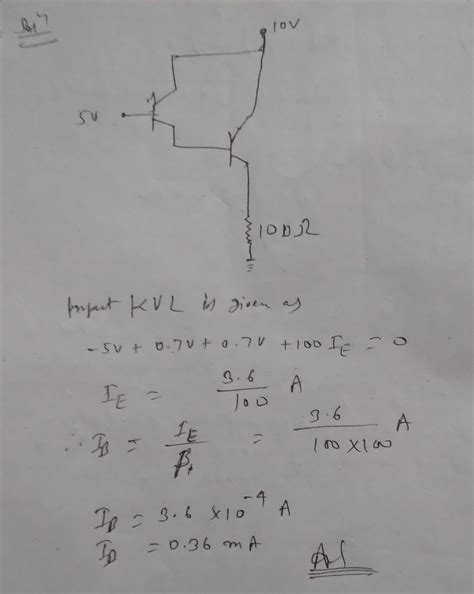 10V
5V
100Ω
KVL is given as
-5V + 0.7V + 0.7V + 100 IE = 0
IE = 3.6/100 A
∴ IB = IE/β = 3.6/100×100 A
IB = 3.6 ×10-4 A
IB = 0.36 mA